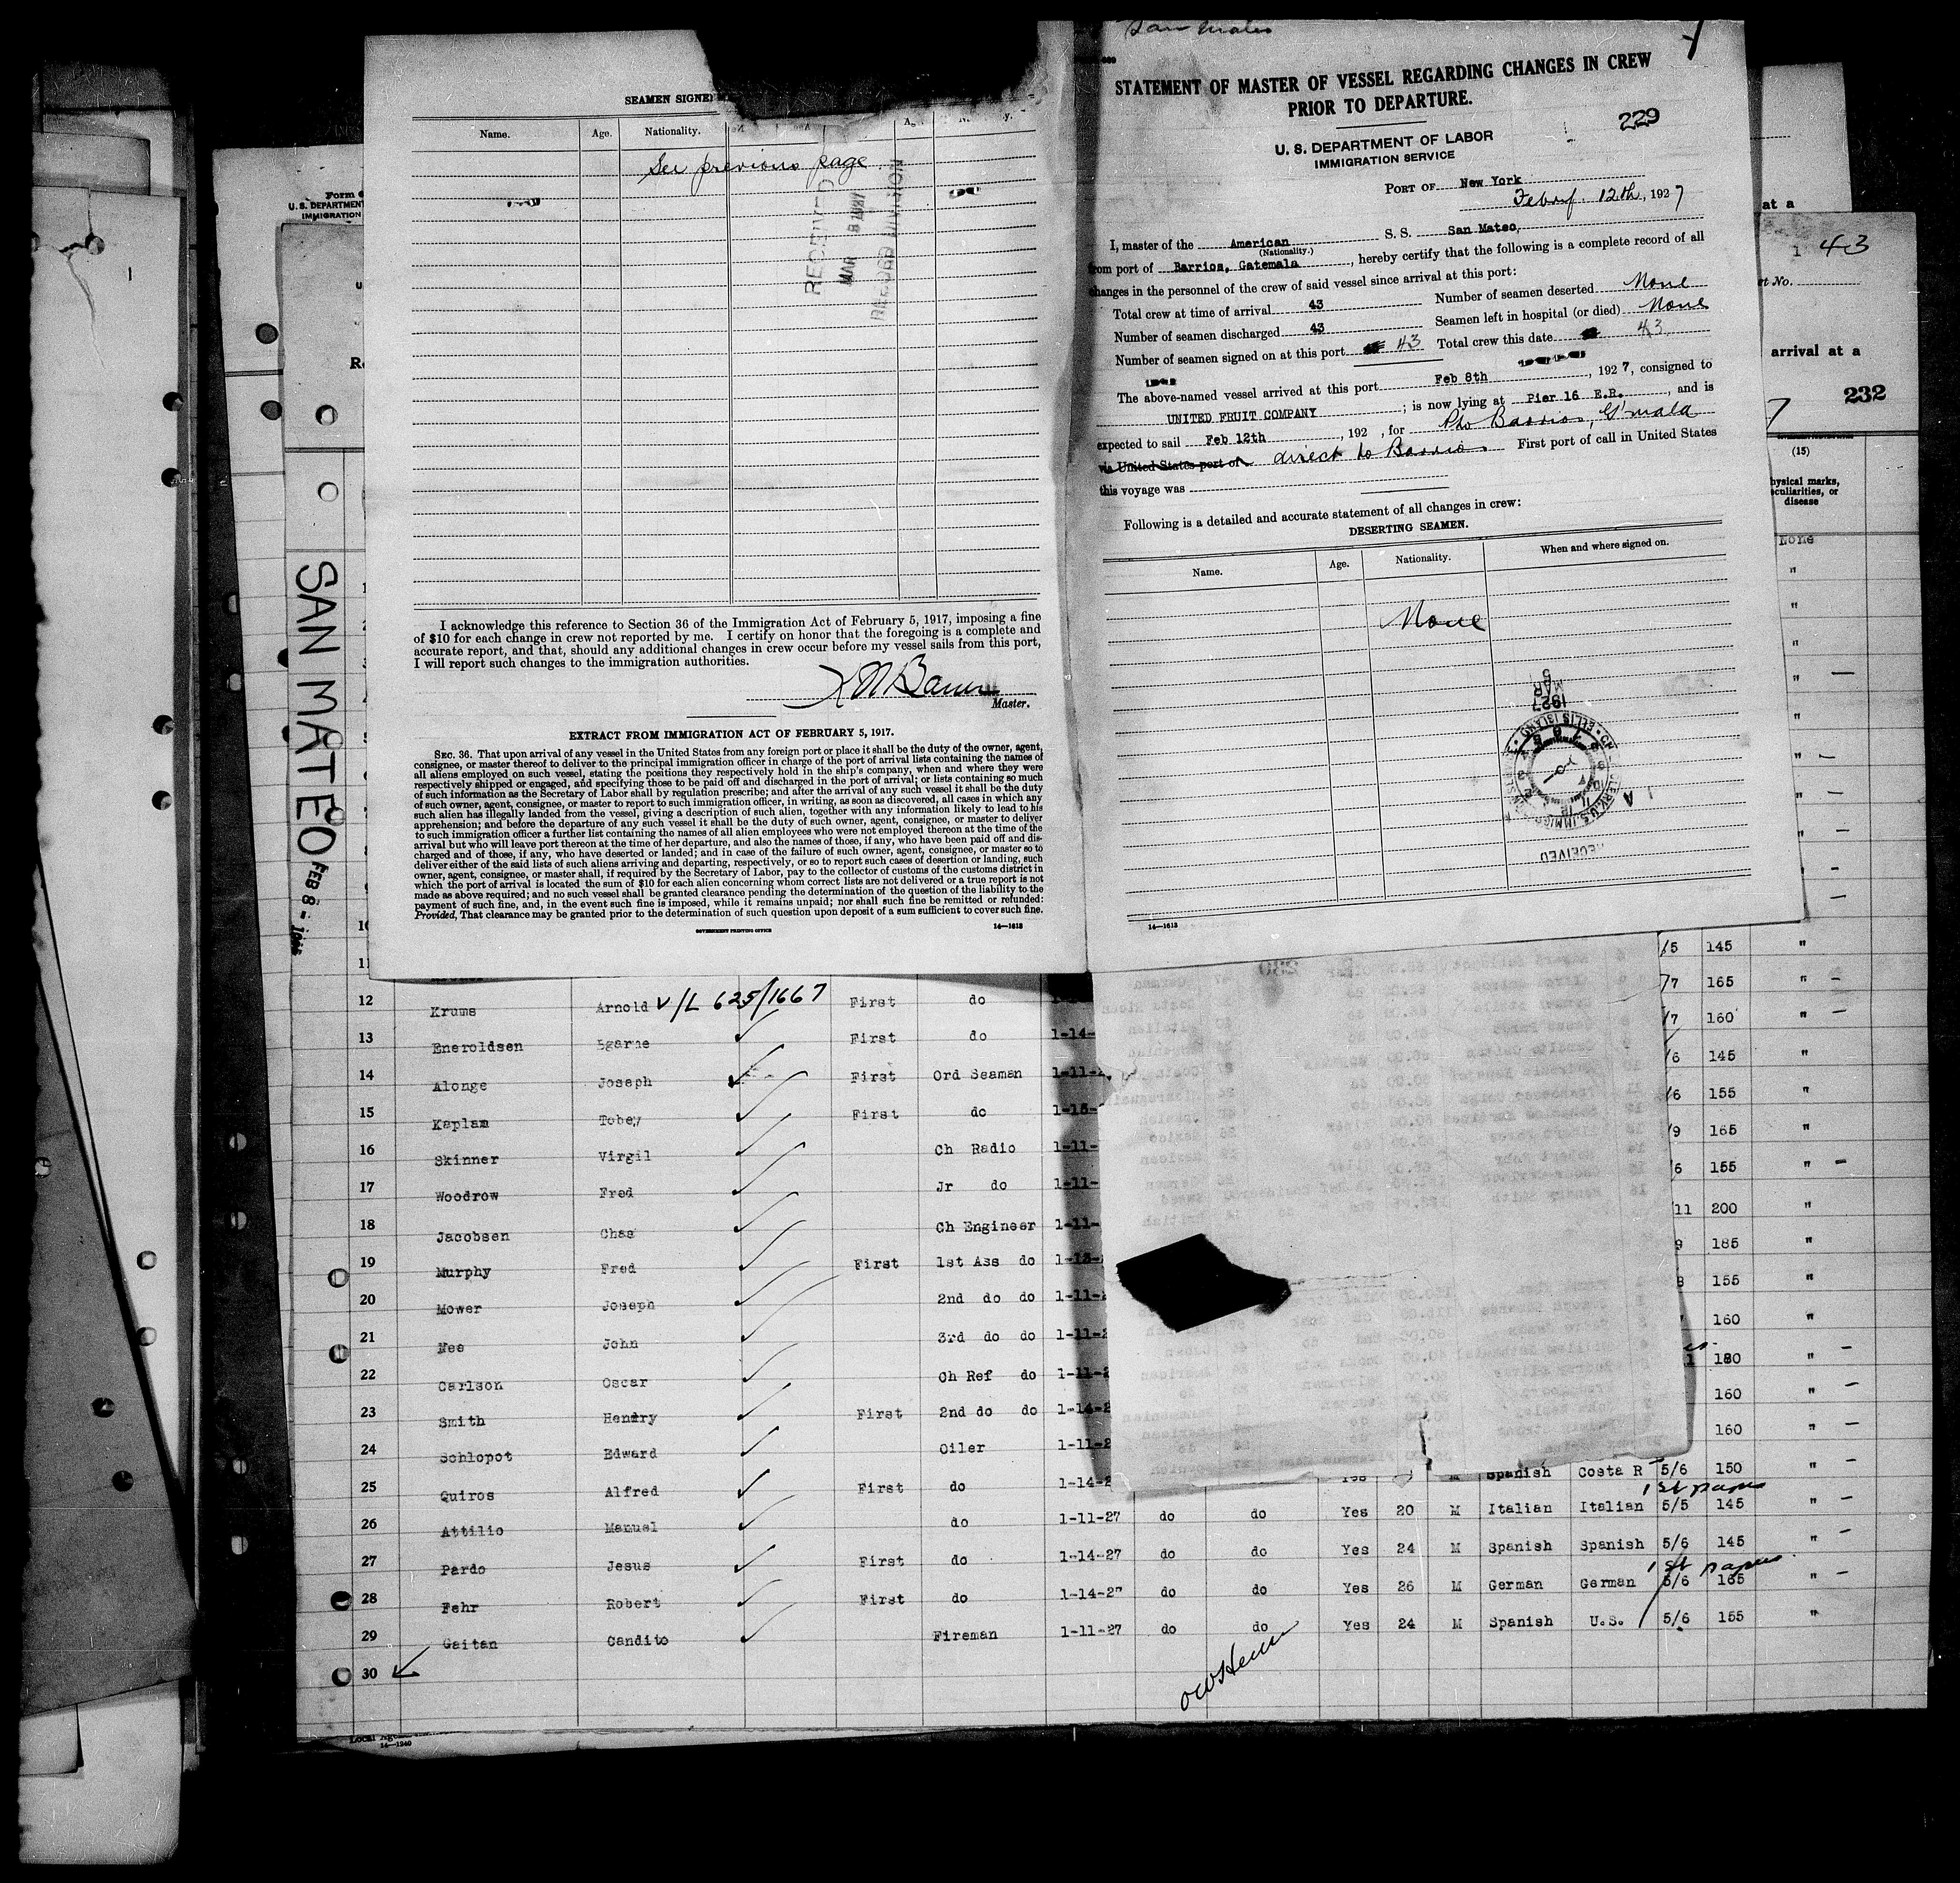 SEAMEN SIGNED
Name. Age. Nationality.
See previous page
RECEIVED
MAR 8 1927
RECORD DIVISION
I acknowledge this reference to Section 36 of the Immigration Act of February 5, 1917, imposing a fine
of $10 for each change in crew not reported by me. I certify on honor that the foregoing is a complete and
accurate report, and that, should any additional changes in crew occur before my vessel sails from this port,
I will report such changes to the immigration authorities.
Master.
EXTRACT FROM IMMIGRATION ACT OF FEBRUARY 5, 1917.
SEC. 36. That upon arrival of any vessel in the United States from any foreign port or place it shall be the duty of the owner, agent,
consignee, or master thereof to deliver to the principal immigration officer in charge of the port of arrival lists containing the names of
all aliens employed on such vessel, stating the positions they respectively hold in the ship's company, when and where they were
respectively shipped or engaged, and specifying those to be paid off and discharged in the port of arrival; or lists containing so much
of such information as the Secretary of Labor shall by regulation prescribe; and after the arrival of any such vessel it shall be the duty
of such owner, agent, consignee, or master to report to such immigration officer, in writing, as soon as discovered, all cases in which any
such alien has illegally landed from the vessel, giving a description of such alien, together with any information likely to lead to his
apprehension; and before the departure of any such vessel it shall be the duty of such owner, agent, consignee, or master to deliver
to such immigration officer a further list containing the names of all alien employees who were not employed thereon at the time of the
arrival but who will leave port thereon at the time of her departure, and also the names of those, if any, who have been paid off and dis-
charged and of those, if any, who have deserted or landed; and in case of the failure of such owner, agent, consignee, or master so to
deliver either of the said lists of such aliens arriving and departing, respectively, or so to report such cases of desertion or landing, such
owner, agent, consignee, or master shall, if required by the Secretary of Labor, pay to the collector of customs of the customs district in
which the port of arrival is located the sum of $10 for each alien concerning whom correct lists are not delivered or a true report is not
made as above required; and no such vessel shall be granted clearance pending the determination of the question of the liability to the
payment of such fine, and, in the event such fine is imposed, while it remains unpaid; nor shall such fine be remitted or refunded:
Provided, That clearance may be granted prior to the determination of such question upon deposit of a sum sufficient to cover such fine.
GOVERNMENT PRINTING OFFICE 14—1613
San Mateo
STATEMENT OF MASTER OF VESSEL REGARDING CHANGES IN CREW
PRIOR TO DEPARTURE.
229
U. S. DEPARTMENT OF LABOR
IMMIGRATION SERVICE
PORT OF New York
Feb'y. 12th, 1927
I, master of the American S. S. San Mateo,
(Nationality.)
from port of Barrios, Gatemala, hereby certify that the following is a complete record of all
changes in the personnel of the crew of said vessel since arrival at this port:
Total crew at time of arrival 43 Number of seamen deserted None
Number of seamen discharged 43 Seamen left in hospital (or died) None
Number of seamen signed on at this port 43 Total crew this date 43
The above-named vessel arrived at this port Feb 8th, 1927, consigned to
UNITED FRUIT COMPANY; is now lying at Pier 16 E.R., and is
expected to sail Feb 12th, 192 , for Pto Barrios, G'mala
via United States port of direct to Barrios First port of call in United States
this voyage was
Following is a detailed and accurate statement of all changes in crew:
DESERTING SEAMEN.
Name. Age. Nationality. When and where signed on.
None
MAR 5
1927
RECEIVED
14—1613
Form
U. S. DEPARTMENT
IMMIGRATION
SAN MATEO
FEB 8 -
at a
1 43
No.
arrival at a
232
(15)
Physical marks,
peculiarities, or
disease
None
12 Krums Arnold V/L 625/1667 First do
13 Eneroldsen Bgarne First do 1-14-
14 Alonge Joseph First Ord Seaman 1-11-2
15 Kaplan Tobey First do 1-13-
16 Skinner Virgil Ch Radio 1-11-
17 Woodrow Fred Jr do 1-11-
18 Jacobsen Chas Ch Engineer 1-11-
19 Murphy Fred First 1st Ass do 1-13-
20 Mower Joseph 2nd do do 1-11-2
21 Nee John 3rd do do 1-11-2
22 Carlson Oscar Ch Ref do 1-11-2
23 Smith Hendry First 2nd do do 1-14-2
24 Schlopot Edward Oiler 1-11-2
25 Quiros Alfred First do 1-14-2 Yes M Spanish Costa R 5/6 150 "
1st papers
26 Attilio Manuel do 1-11-27 do do Yes 20 M Italian Italian 5/5 145 "
27 Pardo Jesus First do 1-14-27 do do Yes 24 M Spanish Spanish 5/6 145 "
1st papers
28 Fehr Robert First do 1-14-27 do do Yes 26 M German German 5/6 165 "
29 Gaitan Candito Fireman 1-11-27 do do Yes 24 M Spanish U.S. 5/6 155 "
30
/5 145 "
/7 165 "
/7 160 "
/6 145 "
/6 155 "
/9 165 "
/6 155 "
/11 200 "
9 185 "
8 155 "
160 "
180 "
160 "
160 "
14—1240